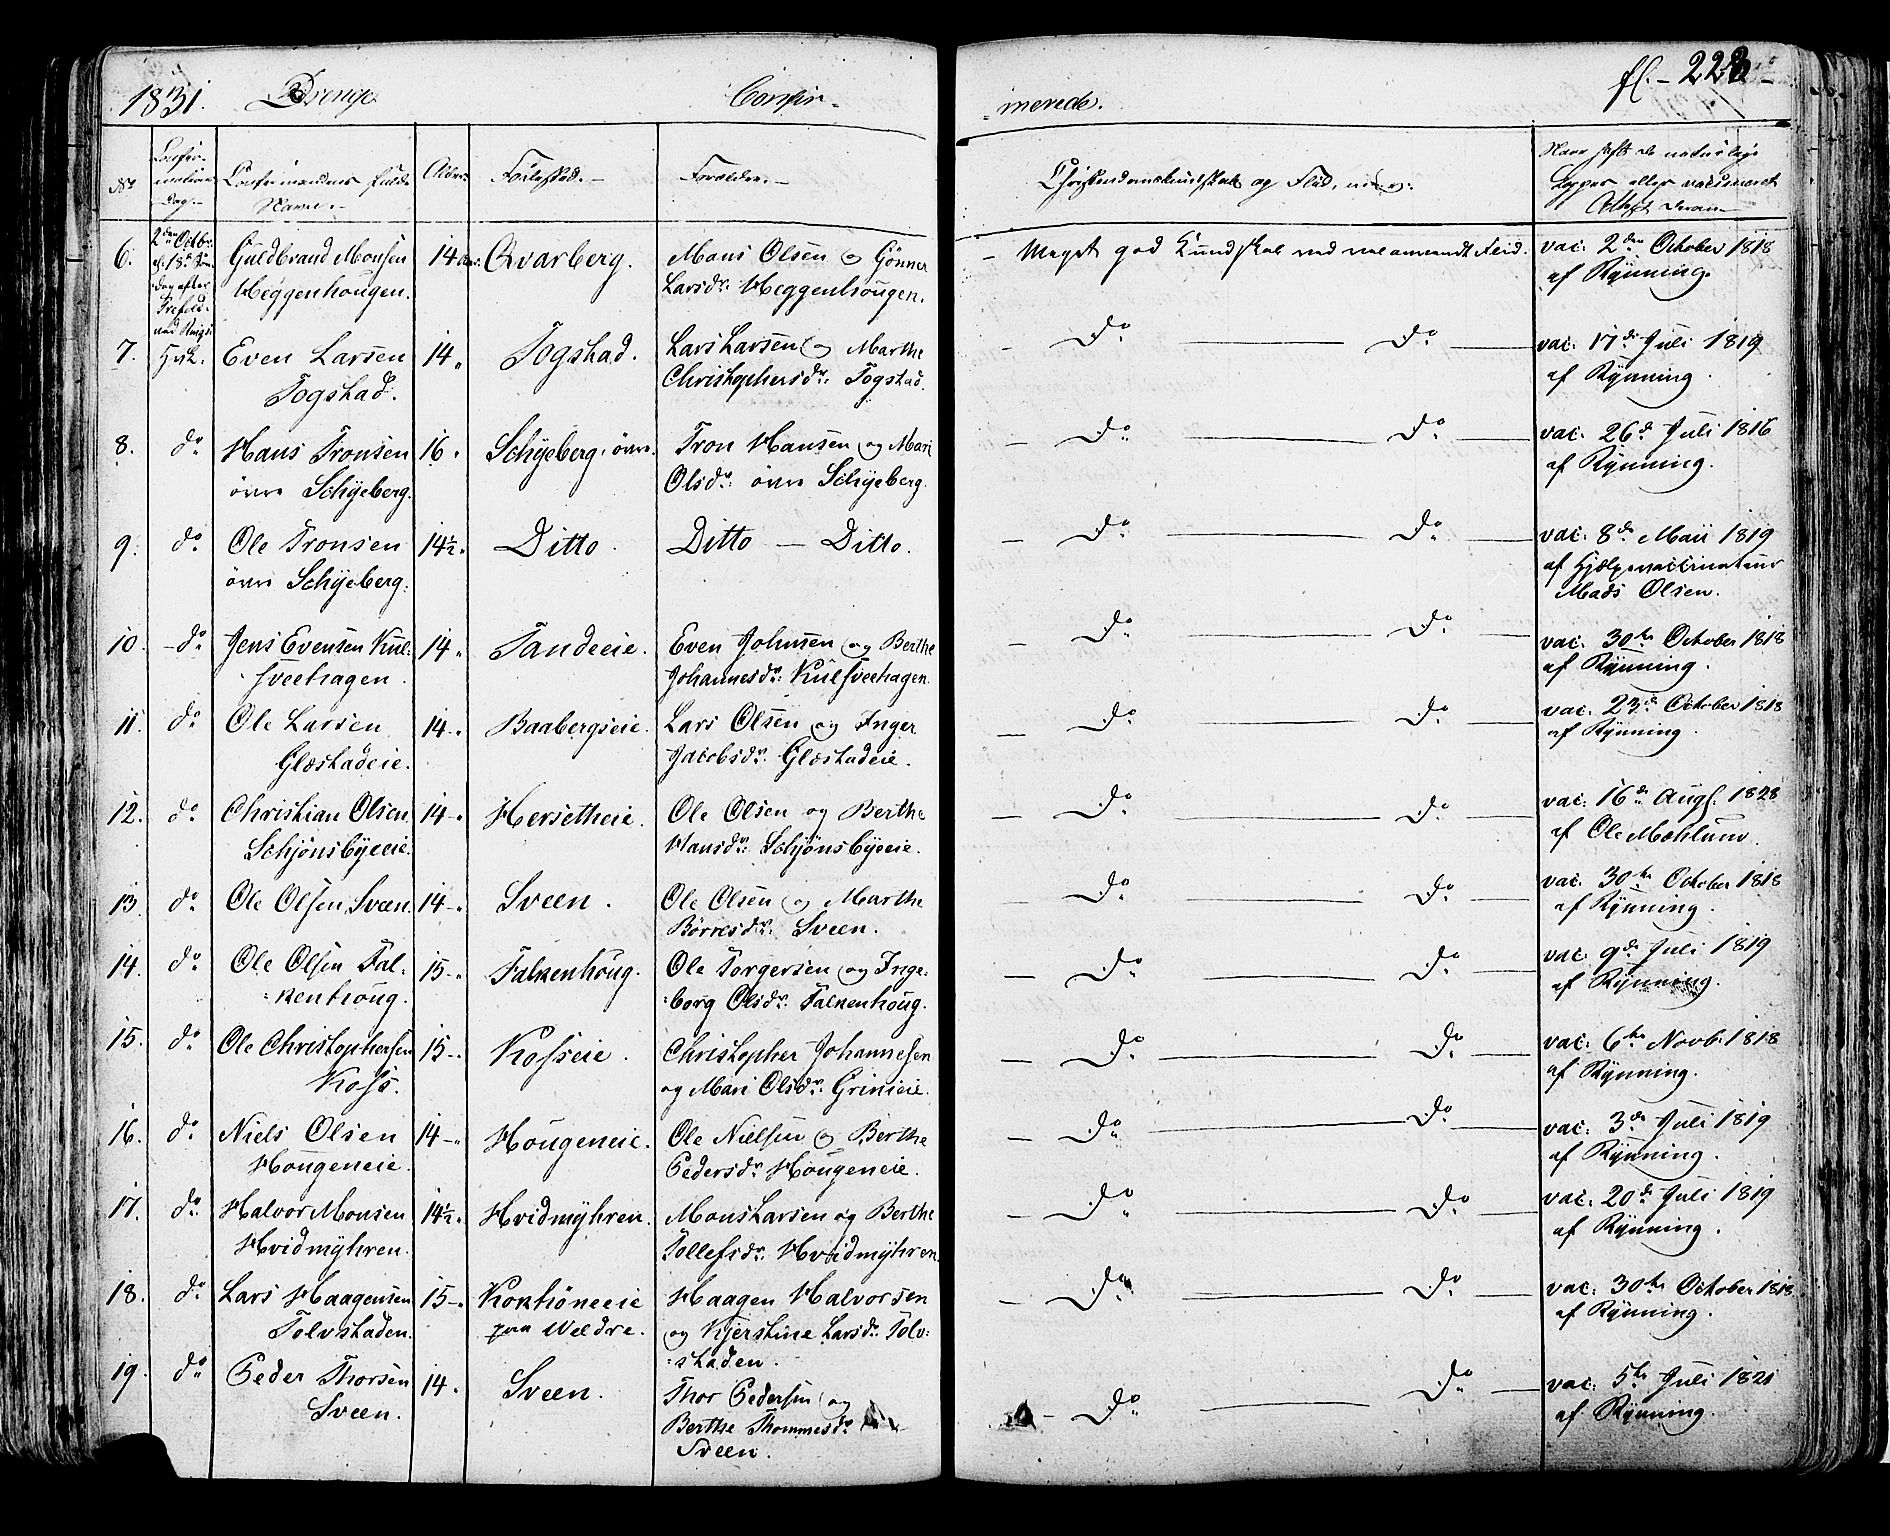 1831. Drenge Confir-
-merede. fl. - 228
No
Confir-
mations
Dag.-
Confirmandens fulde
Navn.-
Alder.
Fødested.-
Forældre.-
Christendomskundskab og Flid,
Have havt de naturlige
Kopper eller vaccineret
Attest derom
6. 2den Octbr.
Guldbrand Monsen
Heggenhougen.
14 Aar. Qvarberg. Mons Olsen og Gønner
Larsdr: Heggenhougen.
- Meget god Kundskab med vel anvendt Flid. vac. 2den October 1818
af Rynning.
7. Even Larsen
Togstad.
14 „ Togstad. Lars Larsen og Marthe
Christophersdr: Togstad.
- Do - Do - vac: 17de Juli 1819
af Rynning.
8. do Hans Tronsen
øvre Schyeberg.
16 „ Schyeberg, øvre. Tron Hansen og Mari
Olsdr: øvre Schyeberg.
- Do - Do - vac: 26d Juli 1816
af Rynning.
9. do Ole Tronsen
øvre Schyeberg.
14½ „ Ditto. Ditto - Ditto.
- Do - Do - vac: 8de Maii 1819
af Hjælpevaccinateur
Mads Olsen.
10. - do Jens Evensen Kul-
sveehagen.
14 „ Tandeeie. Even Johnsen og Berthe
Johannesdr: Kulsveehagen.
- Do - Do - vac: 30te October 1818
af Rynning.
11. do Ole Larsen
Glæstadeie.
14-„ Baabergseie. Lars Olsen og Inger
Jacobsdr: Glæstadeie.
- Do - Do - vac. 23de October 1818
af Rynning.
12. do Christian Olsen
Schjønsbyeeie.
14-„ Hersetheie. Ole Olsen og Berthe
Hansdr: Schjønsbyeeie.
- Do - Do - vac: 16de Augs. 1828
af Ole Mæhlum.
13. do Ole Olsen Sveen. 14-„ Sveen. Ole Olsen og Marthe
Børresdr: Sveen.
- Do - Do - vac: 30te October 1818
af Rynning.
14. do Ole Olsen Fal-
kenhoug.
15-„ Falkenhoug. Ole Torgersen og Inge-
borg Olsdr: Falkenhoug.
- Do - Do - vac: 9de Juli 1819
af Rynning.
15. do Ole Christophersen
Koss.
15-„ Kosseie. Christopher Johannesen
og Mari Olsdr: Grinieie.
- Do - Do - vac: 6te Novb: 1818
af Rynning.
16. do Niels Olsen
Hougeneie.
14-„ Hougeneie. Ole Nielsen og Berthe
Pedersdr: Hougeneie.
- Do - Do - vac: 3de Juli 1819
af Rynning.
17. do Halvor Monsen
Hvidmyhren.
14½ „ Hvidmyhren. Mons Larsen og Berthe
Tollefsdr: Hvidmyhren.
- Do - Do - vac: 20de Juli 1819
af Rynning.
18. do Lars Haagensen
Tolvstaden.
15-„ Korhøneeie
paa Weldre.
Haagen Halvorsen
og Kjerstine Larsdr: Tolv-
staden.
- Do - Do - vac: 30te October 1818
af Rynning.
19. do Peder Thorsen
Sveen.
14 „ Sveen. Thor Pedersen og
Berthe Thommesdr
Sveen.
- Do - Do - vac: 5te Juli 1821
af Rynning.